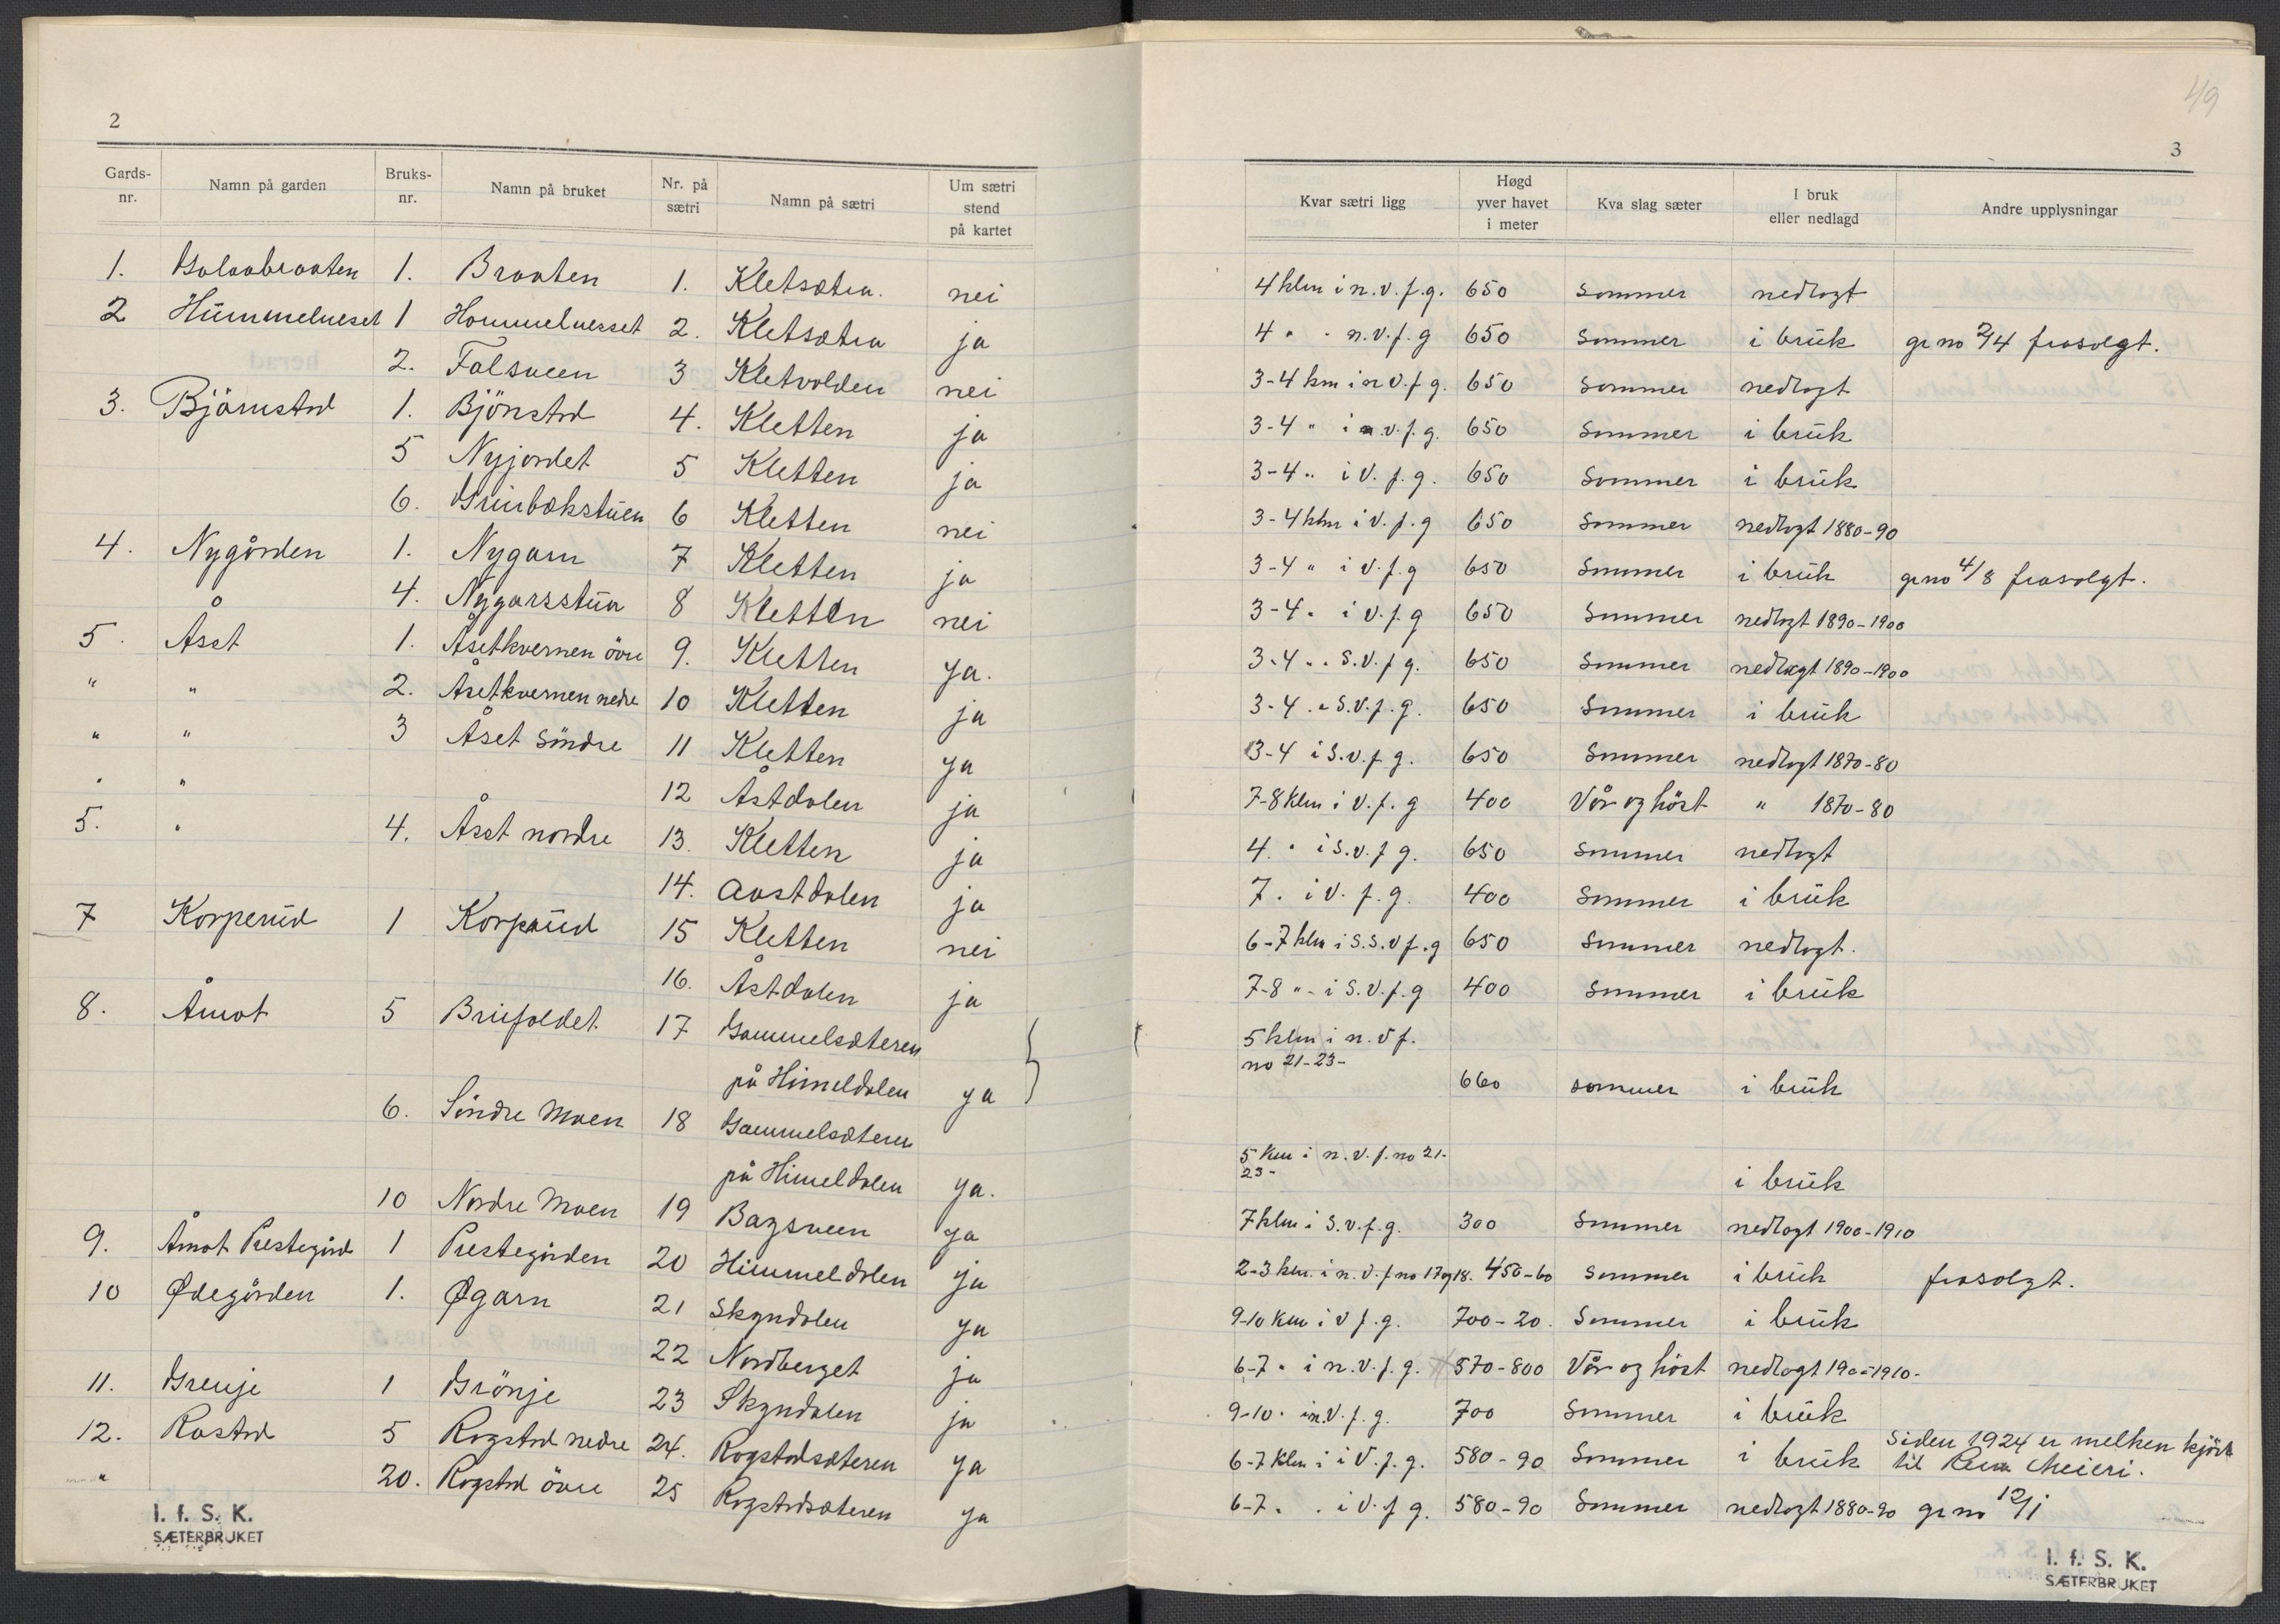 2
Gards-nr. Namn på garden Bruks-nr. Namn på bruket Nr. på sætri Namn på sætri Um sætri stend på kartet
1. 1. Braaten 1. Kletsætra. nei
2 Hümmelneset 1 Hommelnesset 2. Kletsætra ja
2. Falsveen 3 Kletvolden nei
3. Bjørnstad 1. Bjönstad 4. Kletten ja
5 Nyjordet 5 Kletten ja
6. Grinbækstüen 6 Kletten nei
4. Nygården 1. Nygarn 7 Kletten ja
4. Nygarsstüa 8 Kletten nei
5. Åset 1. Åsetkvernen övre 9. Kletten ja.
" " 2. Åsetkvernen nedre 10 Kletten ja
" " 3 Åset söndre 11 Kletten ja
" " 12 Åstdalen ja
5. " 4. Åset nordre 13. Kletten ja
14. Aastdalen ja
7 Korperüd 1 Korperüd 15 Kletten nei
16. Åstdalen ja
8. Åmot 5 17 Gammelsæteren
på Himeldalen ja
6. Söndre Moen 18 Gammelsæteren
på Himeldalen ja.
10 Nordre Moen 19 Bagsveen ja
9. Åmot Prestegård 1 Prestegården 20 Himmeldalen ja
10 Ødegården 1. Øgarn 21 Skyndalen ja
22 Nordberget ja
11. Grenje 1 Grönje 23 Skyndalen ja
12. Rastad 5 Rogstad nedre 24. Rogstadsæteren ja
" 20. Rogstad övre 25 Rogstadsæteren ja
I. f. S. K.
SÆTERBRUKET
49
3
Kvar sætri ligg Høgd yver havet i meter Kva slag sæter I bruk eller nedlagd Andre upplysningar
4 klm i n.v.f.g. 650 sommer nedlagt
4 " - n.v.f.g 650 Sommer i brük gr no 2/4 frasolgt.
3-4 km i n.v.f.g. 650 Sommer nedlagt
3-4 " i n.v.f.g. 650 Sommer i brük
3-4 " i v.f.g. 650 Sommer i brük
3-4 klm i v.f.g 650 Sommer nedlagt 1880-90
3-4 " i v.f.g 650 Sommer i brük gr no 4/8 frasolgt.
3-4 " i v.f.g 650 Sommer nedlagt 1890-1900
3-4 " . S.v.f.g. 650 Sommer nedlagt 1890-1900
3-4 . " S.v.f.g. 650 Sommer i brük
3-4 i S.v.f.g. 650 Sommer nedlagt 1870-80
7-8 klm i v.f.g 400 Vår og höst " 1870-80
4. " i S.v.f.g. 650 Sommer nedlagt
7. i v.f.g. 400 Sommer i brük
6-7 klm i S.S.v.f.g 650 Sommer nedlagt.
7-8 " - i S.v.f.g 400 Sommer i brük
5 klm i n.v.f.
no 21-23- 660 sommer i brük
5 km i n.v.f. no 21-
23- i brük
7 klm i S.v.f.g. 300 Sommer nedlagt 1900-1910
2-3 klm. i n.v.f no 17 og 18. 450-60 Sommer i brük frasolgt.
9-10 km i v f.g. 700-20. Sommer i brük
6-7 " i n.v.f.g. 570-800 Vår og höst nedlagt 1900-1910-
9-10 " i n.v.f.g. 700 Sommer i brük
6-7 klm i i v.f.g. 580-90 Sommer i brük Siden 1924 er melken kjört
til Rena Meieri.
6-7 . . i v.f.g. 580-90 Sommer nedlagt 1880-90 gr no 12/1
I. f. S. K.
SÆTERBRUKET